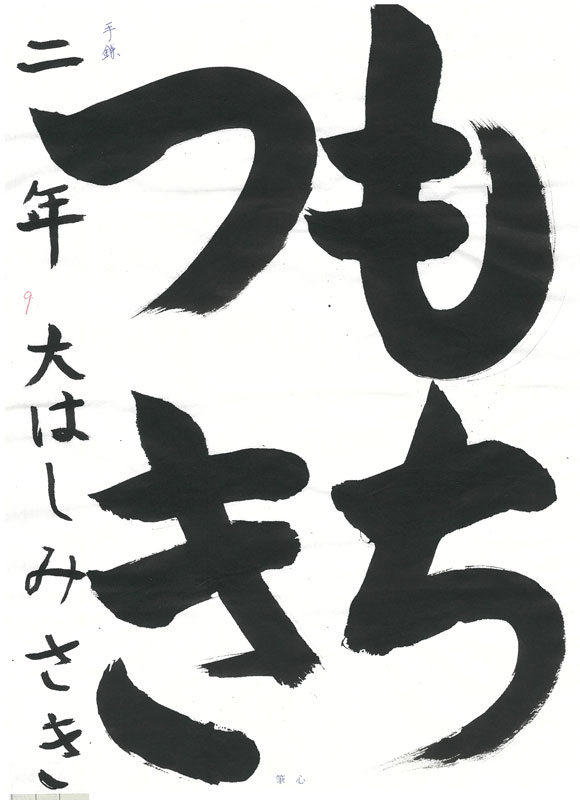 もち
つき
二年 大はしみさき
手鎌
9
筆心